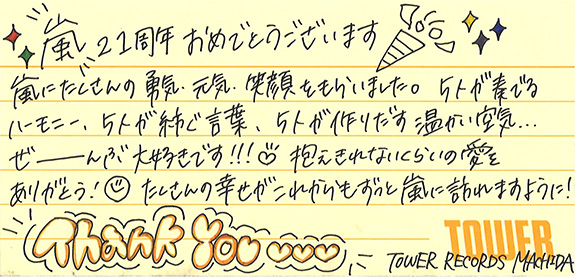 嵐 21周年 おめでとうございます
嵐にたくさんの勇気、元気、笑顔をもらいました。5人が奏でる
ハーモニー、5人が紡ぐ言葉、5人が作りだす温かい空気...
ぜーーんぶ大好きです!!! 抱えきれないくらいの愛を
ありがとう! たくさんの幸せがこれからもずっと嵐に訪れますように!
Thank you
TOWER
TOWER RECORDS MACHIDA